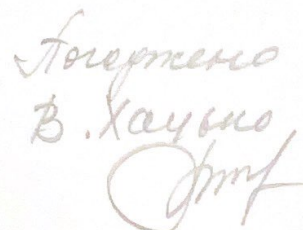 Погоджено
В. Хацько